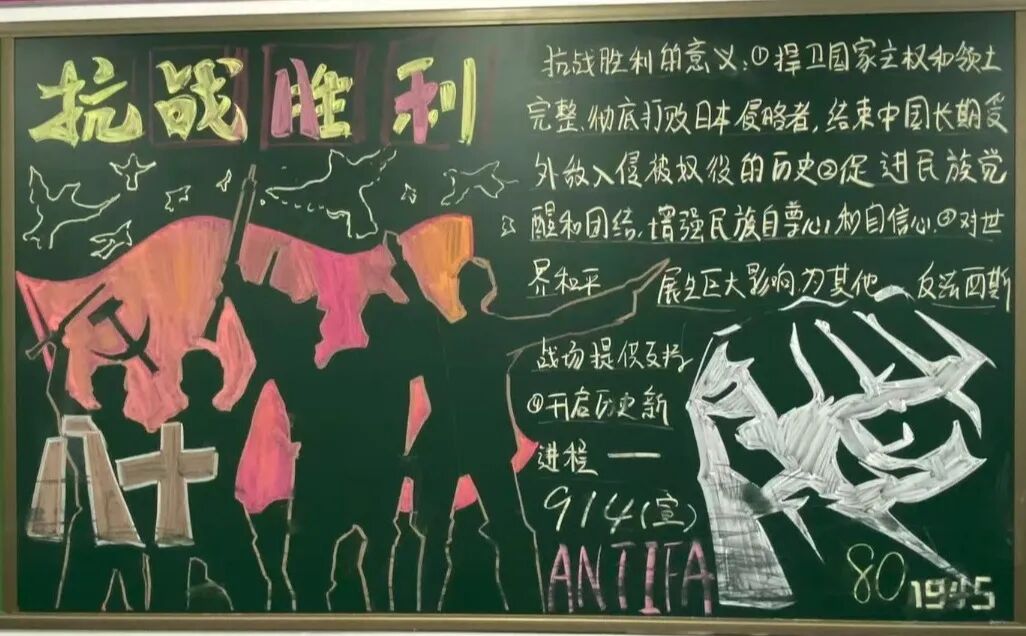 抗战胜利
抗战胜利的意义:①捍卫国家主权和领土
完整,彻底打败日本侵略者,结束中国长期受
外敌入侵被奴役的历史②促进民族觉
醒和团结,增强民族自尊心,和自信心,③对世
界和平 展生巨大影响,为其他 反法西斯
战场提供支持
④开启历史新
进程 —
八十
914(宣)
ANTIFA
80 1945